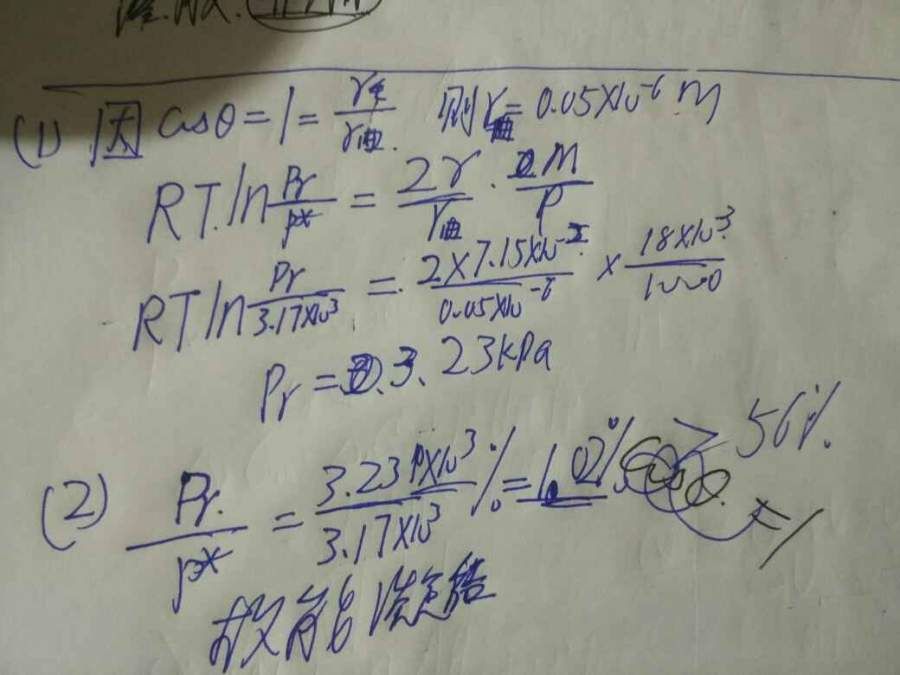 (1) 因 cosθ = 1 = r毛/r曲. 则 r曲 = 0.05×10⁻⁶ m
RT.ln Pr/P* = 2γ/r曲 · M/ρ
RT ln Pr/3.17×10³ = 2×7.15×10⁻²/0.05×10⁻⁶ × 18×10⁻³/1000
Pr = 3.23kPa
(2) Pr./P* = 3.23×10³/3.17×10³ % = 1.02% > 56%.
cosθ. = 1
故能